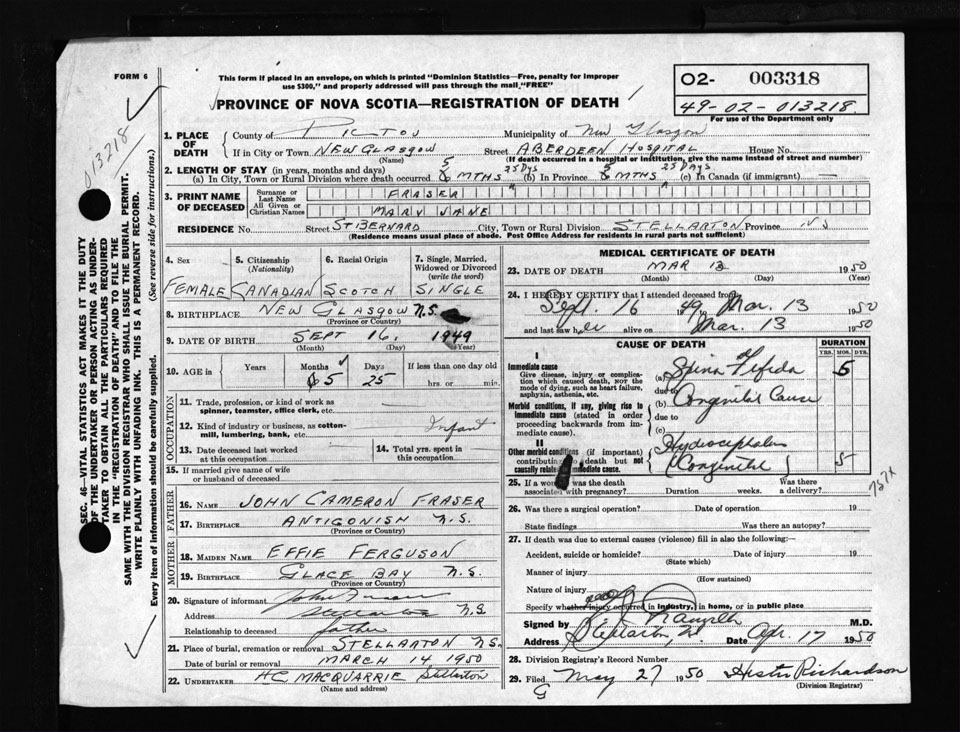 FORM 6
This form if placed in an envelope, on which is printed "Dominion Statistics—Free, penalty for improper
use $300," and properly addressed will pass through the mail "FREE"
PROVINCE OF NOVA SCOTIA—REGISTRATION OF DEATH
O2- 003318
49-02-013218
For use of the Department only
013218
SEC. 46—VITAL STATISTICS ACT MAKES IT THE DUTY
OF THE UNDERTAKER OR PERSON ACTING AS UNDER-
TAKER TO OBTAIN ALL THE PARTICULARS REQUIRED
IN THE "REGISTRATION OF DEATH" AND TO FILE THE
SAME WITH THE DIVISION REGISTRAR WHO SHALL ISSUE THE BURIAL PERMIT.
WRITE PLAINLY WITH UNFADING INK. THIS IS A PERMANENT RECORD.
Every item of information should be carefully supplied. (See reverse side for instructions.)
1. PLACE OF DEATH County of PICTOU Municipality of New Glasgow
If in City or Town NEW GLASGOW Street ABERDEEN HOSPITAL House No.
(Name) (If death occurred in a hospital or institution, give the name instead of street and number)
2. LENGTH OF STAY (in years, months and days) 5 25 Dys 25 Days
(a) In City, Town or Rural Division where death occurred MTHS (b) In Province MTHS (c) In Canada (if immigrant) —
3. PRINT NAME OF DECEASED Surname or Last Name FRASER
All Given or Christian Names MARY JANE
RESIDENCE No. Street ST BERNARD City, Town or Rural Division STELLARTON Province N S
(Residence means usual place of abode. Post Office Address for residents in rural parts not sufficient)
4. Sex FEMALE
5. Citizenship (Nationality) CANADIAN
6. Racial Origin SCOTCH
7. Single, Married, Widowed or Divorced (write the word) SINGLE
8. BIRTHPLACE NEW GLASGOW N.S.
(Province or Country)
9. DATE OF BIRTH SEPT 16, 1949
(Month) (Day) (Year)
10. AGE in Years Months 5 Days 25 If less than one day old
hrs. or min.
OCCUPATION
11. Trade, profession, or kind of work as
spinner, teamster, office clerk, etc.
12. Kind of industry or business, as cotton-
mill, lumbering, bank, etc. Infant
13. Date deceased last worked
at this occupation
14. Total yrs. spent in
this occupation
15. If married give name of wife
or husband of deceased
FATHER
16. Name JOHN CAMERON FRASER
17. BIRTHPLACE ANTIGONISH N.S.
(Province or Country)
MOTHER
18. MAIDEN NAME EFFIE FERGUSON
19. BIRTHPLACE GLACE BAY N.S.
(Province or Country)
20. Signature of informant John Fraser
Address Stellarton N.S
Relationship to deceased father
21. Place of burial, cremation or removal STELLARTON N.S.
Date of burial or removal MARCH 14 1950
22. UNDERTAKER HC MACQUARRIE Stellarton
(Name and address)
MEDICAL CERTIFICATE OF DEATH
23. DATE OF DEATH MAR 13 1950
(Month) (Day) (Year)
24. I HEREBY CERTIFY that I attended deceased from
Sept. 16 1949 Mar. 13 1950
and last saw her alive on Mar. 13 1950
CAUSE OF DEATH DURATION
YRS. MOS. DYS.
I
Immediate cause
Give disease, injury or complica-
tion which caused death, not the
mode of dying, such as heart failure,
asphyxia, asthenia, etc.
(a) Spina Bifida 5
due to
(b) Congenital Cause
Morbid conditions, if any, giving rise to
immediate cause (stated in order
proceeding backwards from im-
mediate cause).
due to
(c)
II
Other morbid conditions (if important)
contributing to death but not
causally related to immediate cause.
Hydrocephalus
(Congenital) 5
757X
25. If a woman was the death
associated with pregnancy? Duration weeks. Was there
a delivery?
26. Was there a surgical operation? Date of operation. 19
State findings Was there an autopsy?
27. If death was due to external causes (violence) fill in also the following:—
Accident, suicide or homicide? Date of injury 19
(State which)
Manner of injury
(How sustained)
Nature of injury
Specify whether injury occurred in industry, in home, or in public place
Signed by M.D.
Address Stellarton, Date Apr. 17 1950
28. Division Registrar's Record Number
29. Filed May 27 1950 Hester Richardson
(Division Registrar)
G